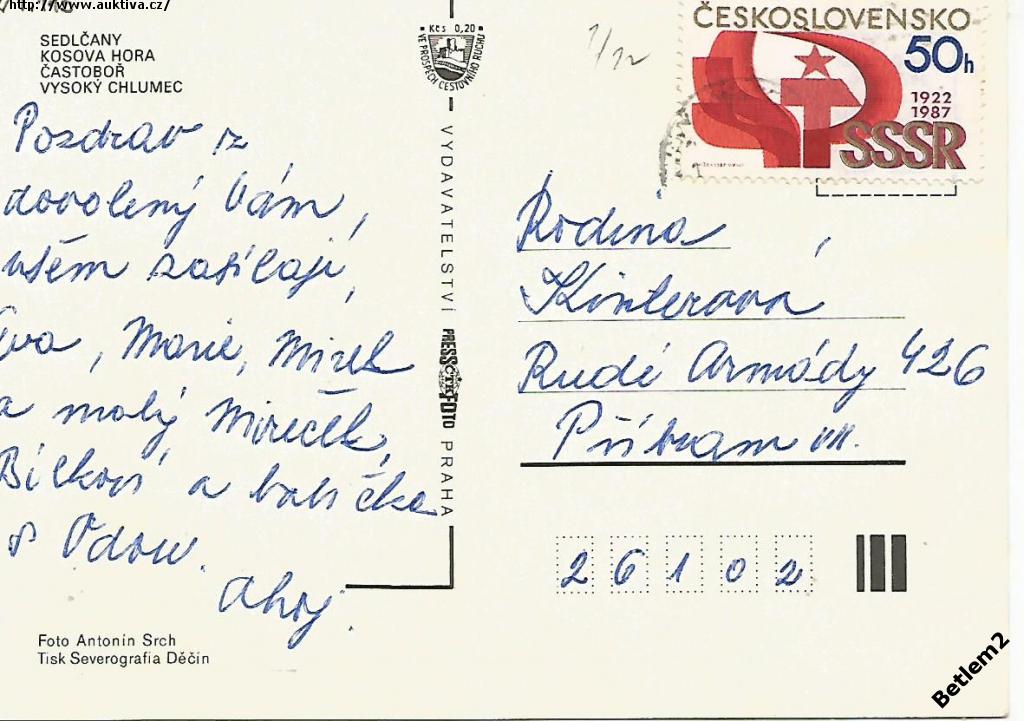 http://www.auktiva.cz/
SEDLČANY
KOSOVA HORA
ČASTOBOŘ
VYSOKÝ CHLUMEC
Kčs 0,20
VE PROSPĚCH CESTOVNÍHO RUCHU
1/12
ČESKOSLOVENSKO
50h
1922
1987
SSSR
Pozdrav z
dovolený Vám,
všem zasílají,
Eva, Marie, Mirek
a malý Mireček,
Bílkovi a babička
s Vdou.
Ahoj.
VYDAVATELSTVÍ PRESSFOTO PRAHA
ČTK
Rodina
Kinterova
Rudé Armády 426
Příbram VII.
26102
Foto Antonín Srch
Tisk Severografia Děčín
Betlem2